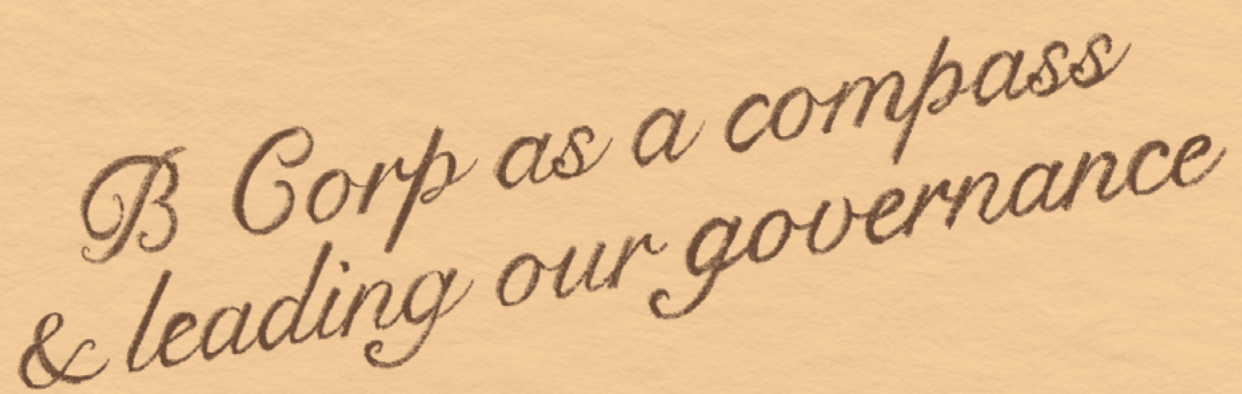 B Corp as a compass
& leading our governance